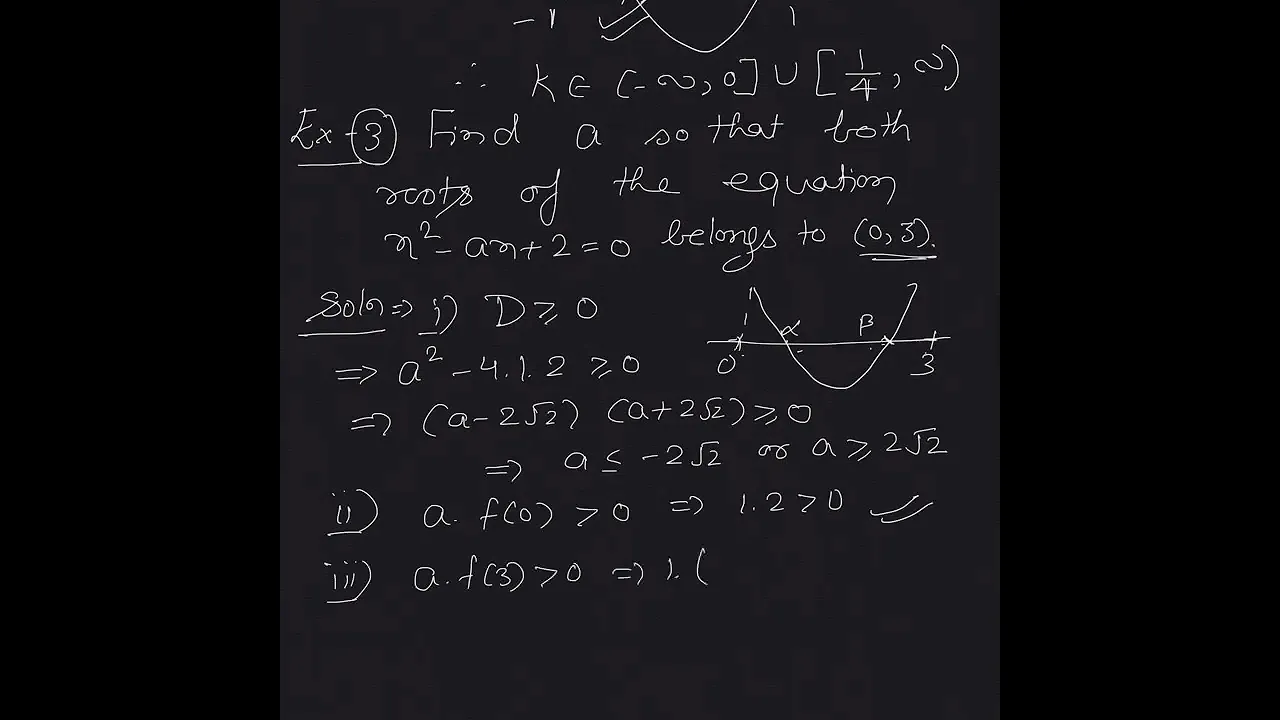 -1 1
∴ K ∈ (-∞, 0] ∪ [1/4, ∞)
Ex-3 Find a so that both
roots of the equation
x² - ax + 2 = 0 belongs to (0, 3).
Soln ⇒ i) D ≥ 0
α β
0 3
⇒ a² - 4.1.2 ≥ 0
⇒ (a - 2√2) (a + 2√2) ≥ 0
⇒ a ≤ -2√2 or a ≥ 2√2
ii) a. f(0) > 0 ⇒ 1.2 > 0
iii) a. f(3) > 0 ⇒ 1. (